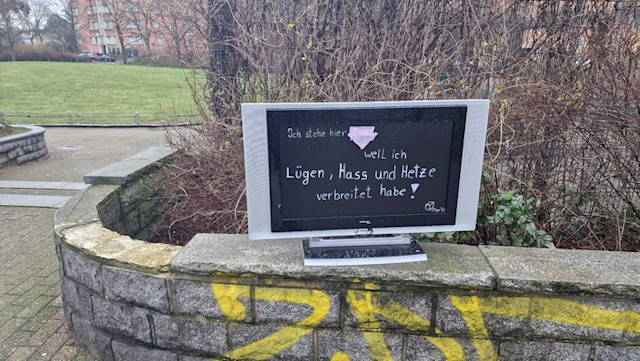 Ich stehe hier
weil ich
Lügen, Hass und Hetze
verbreitet habe!